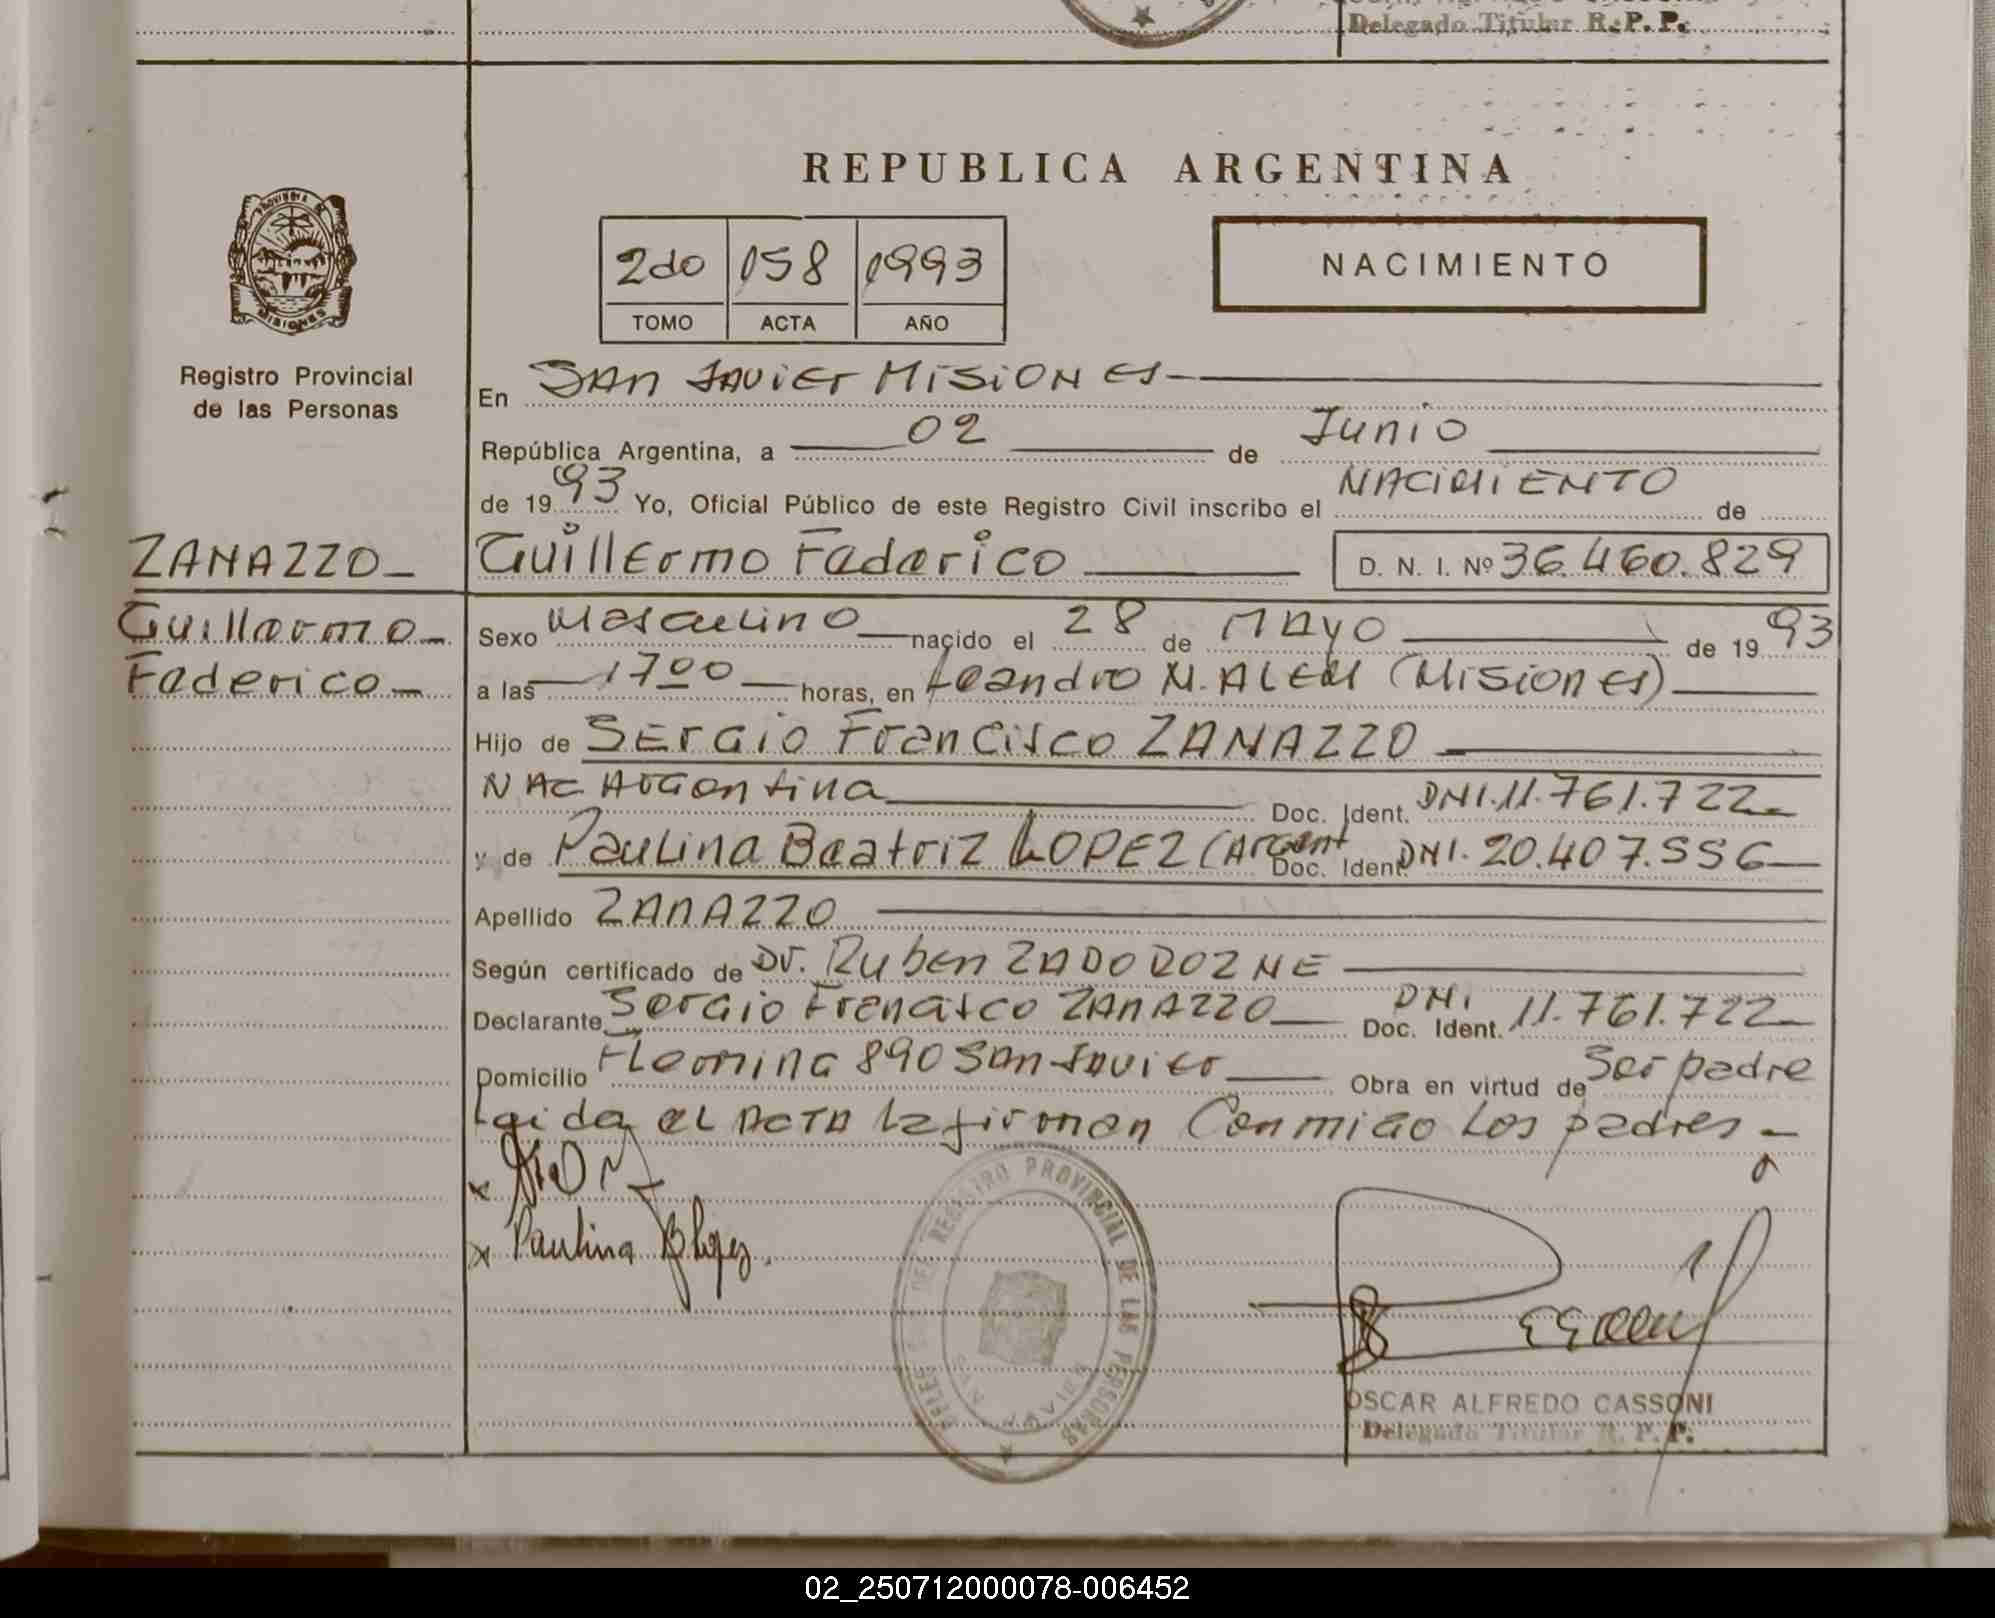 Delegado Titular R.P.P.
REPUBLICA ARGENTINA
PROVINCIA DE
MISIONES
2do 158 1993
TOMO ACTA AÑO
NACIMIENTO
Registro Provincial
de las Personas
En SAN JAVIER MISIONES
República Argentina, a 02 de Junio
de 1993 Yo, Oficial Público de este Registro Civil inscribo el NACIMIENTO de
ZANAZZO
Guillermo Federico D. N. I. Nº 36.460.829
Guillermo
Federico
Sexo Masculino nacido el 28 de MAYO de 1993
a las 1700 horas, en Leandro N. ALEM (Misiones)
Hijo de SERGIO Francisco ZANAZZO
NAC Argentina Doc. Ident. DNI. 11.761.722
y de Paulina Beatriz LOPEZ (Argent Doc. Ident. DNI. 20.407.556
Apellido ZANAZZO
Según certificado de Dr. Ruben ZADOROZNE
Declarante Sergio Francisco ZANAZZO Doc. Ident. DNI 11.761.722
Domicilio Fleming 890 San Javier Obra en virtud de Ser padre
Leida el ACTA la firman Conmigo Los padres
x
x Paulina B López
REGISTRO PROVINCIAL DE LAS PERSONAS
OSCAR ALFREDO CASSONI
Delegado Titular R. P. P.
02_250712000078-006452